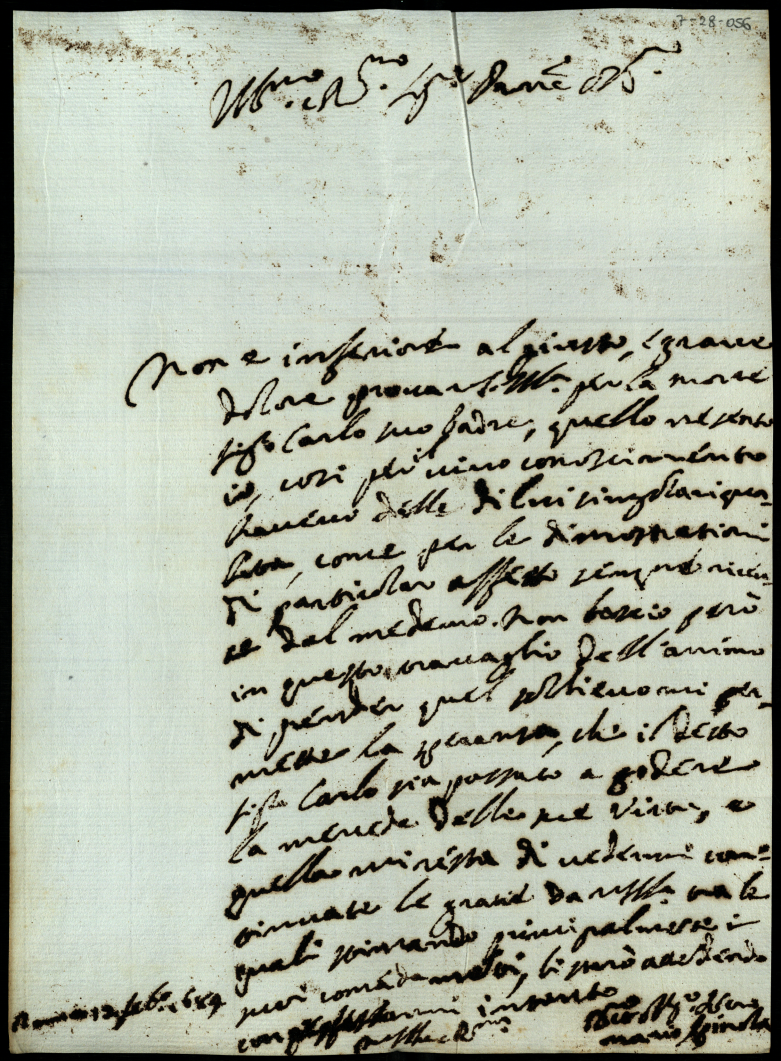 7-28-056
Ill.mo e R.mo Sig.re Padrē
Non è inferiore al giusto, e grave
dolore prova V.S. Ill.ma per la morte
Sig.r Carlo suo Padre, quello ne sento
io, così per il vivo conoscimento
havevo delle di lui singolari qua-
lità, come per le dimostrationi
di particolar affetto sempre
dal medemo. Non lascio però
in questo travaglio dell'animo
di prender quel sollievo mi per-
mette la speranza, che il detto
Sig.r Carlo sia passato a godere
la mercede delle sue virtù, e
quella mi resta di vedermi con-
tinuate le gratie da V.S. Ill.ma tra le
quali stimando principalmente i
suoi comandamenti, li starò attendendo
con intento
Roma 12 feb.o 1684